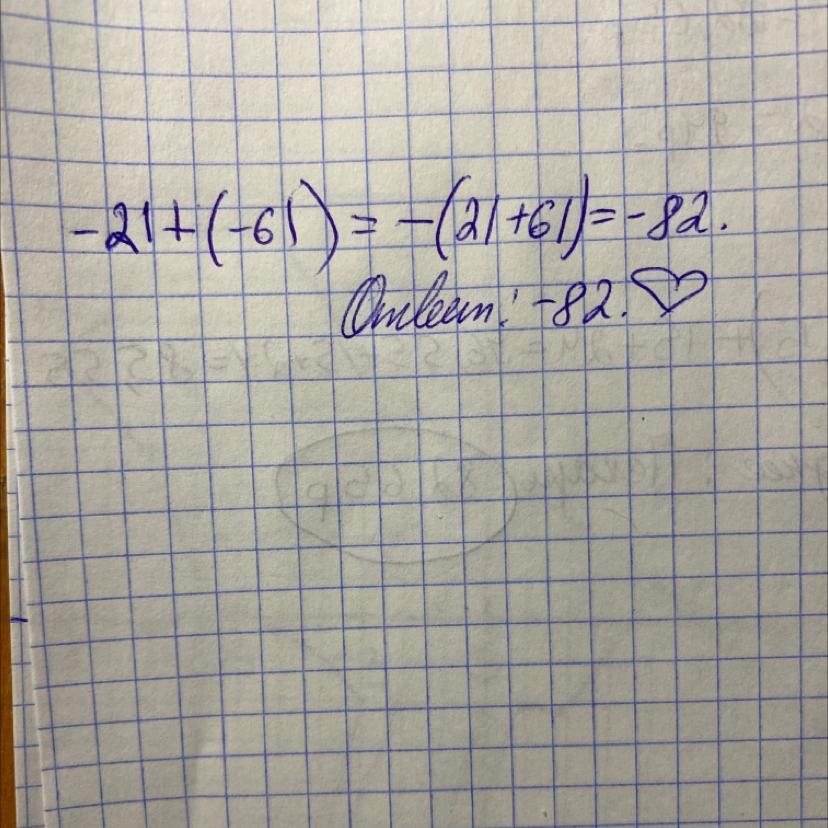 -21+(-61)=-(21+61)=-82.
Ответ: -82.